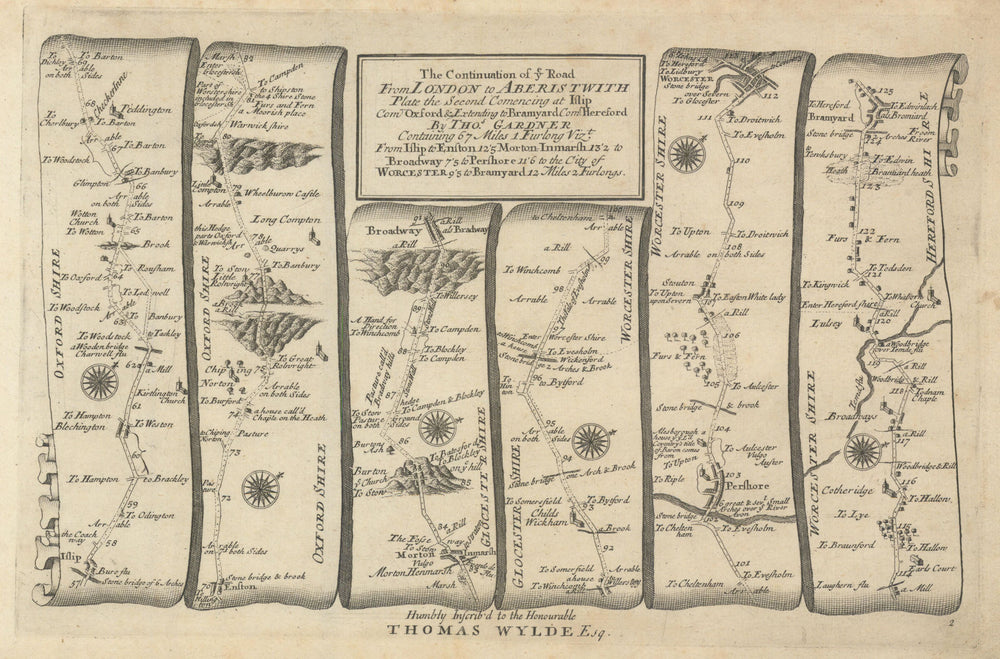 The Continuation of ye Road
From LONDON to ABERISTWITH
Plate the Second Comencing at Islip
Com Oxford & Extending to Bramyard Com Hereford
By Tho: GARDNER
Containing 67 Miles 1 Furlong Vizt.
From Islip to Enston 12'5 Morton Inmarsh 13'2 to
Broadway 7'5 to Pershore 11'6 to the City of
WORCESTER 9'5 to Bramyard 12 Miles 2 Furlongs.
To Dichley
69
To Barton
Arable
on both Sides
68
Checkerlane
To Chorlbury
Teddington
To Barton
Arable
67
To Woodstock
To Banbury
Glimpton
66
Arable
on both Sides
Wotton Church
To Barton
To Wotton
65
Brook
To Rousham
To Oxford
64
To Ledwell
To Woodstock
Arable
63
To Banbury
To Tackley
To Woodstock
a Wooden bridge
Charwell flu
62
a Mill
OXFORD SHIRE
Kirtlington Church
61
To Hampton
Blechington
To Weston
60
To Hampton
To Brackley
59
To Odington
Arable
the Coach way
58
Islip
57
Bure flu
Stone bridge of 6 Arches
Marsh
82
Enter Glocestersh
To Campden
To Shipston
the 4 Shire Stone
Furs and Fern
a Moorish place
Part of Worcestershire
80
Warwick shire
Little Compton
79
Wheelburow Castle
Arable
Long Compton
this Hedge parts Oxford & Warwicksh
78
Arable
Quarrys
77
To Banbury
To Stow
Little Rolwright
a Rill
OXFORD SHIRE
To Great Rolwright
Chiping Norton
75
Arable
on both Sides
To Burford
74
a house call'd
Chaple on the Heath
To Chiping Norton
Pasture
73
Pasture
72
OXFORD SHIRE
71
Arable
on both Sides
Stone bridge & brook
70
Enston
Broadway
92
a Rill
als Bradway
a Rill
To Willersey
A Hand for
Direction
To Winchcomb
To Campden
88
To Blockley
To Campden
Pasture called
Broadway hill
hedge
To Stow
To Campden & Blockley
Burton Ash
86
To Batsford
& Blockley
on ye hill
Burton
ye Church
To Stow
85
GLOCESTER SHIRE
84
a Rill
The Fosse
way
To Stow
Morton
Inmarsh
Vulgo
Morton Henmarsh
83
Marsh
to Cheltenham
100
a Rill
Arable
To Winchcomb
98
Arable
Arable
WORCESTER SHIRE
97
Enter
Worcester Shire
To Evesholm
a house
Stone bridge
Wickenford
2 Arches & Brook
96
To Bytford
95
Arable
on both Sides
94
Arch & Brook
Stone bridge
GLOCESTER SHIRE
To Somersfield
93
To Bytford
Childs Wickham
a Brook
92
To Somerfield
Arable
a house
To Winchcomb
To Hereford
To Lidbury
WORCESTER
Stone bridge
over Severn
To Glocester
112
To Droitwich
111
To Evesholm
WORCESTER SHIRE
110
109
To Upton
To Droitwich
108
Arable
on both Sides
Stouton
To Upton
upon Severn
107
To Easton White lady
a Rill
106
Furs & Fern
105
To Aulcester
Stone bridge
& brook
To Aulcester
Vulgo
Auster
To Upton
To Riple
103
Pershore
6 great & sevl Small
Arches over ye River
Avon
Stone bridge
102
To Cheltenham
To Evesholm
101
To Cheltenham
To Evesholm
Arable
125
To Hereford
Bramyard
Stone bridge
Arches
Froom River
124
To Tewksbury
To Edwin
Heath
Bramiard heath
123
122
Furs & Fern
HEREFORD SHIRE
To Todsden
121
To Kingwick
Enter Hereford shire
To Whitborn Church
a Rill
Lulsey
120
a Woodbridge
over Temde flu
119
a Rill
Temd flu
Woodbridge
& Rill
118
Kednam Chaple
Broadways
a Rill
117
WORCESTER SHIRE
Woodbridge & Rill
Cotheridge
116
To Hallow
To Lye
115
To Braunford
To Hallow
Earls Court
Laughern flu
114
a Mill
Humbly Inscrib'd to the Honourable
THOMAS WYLDE Esq.
2